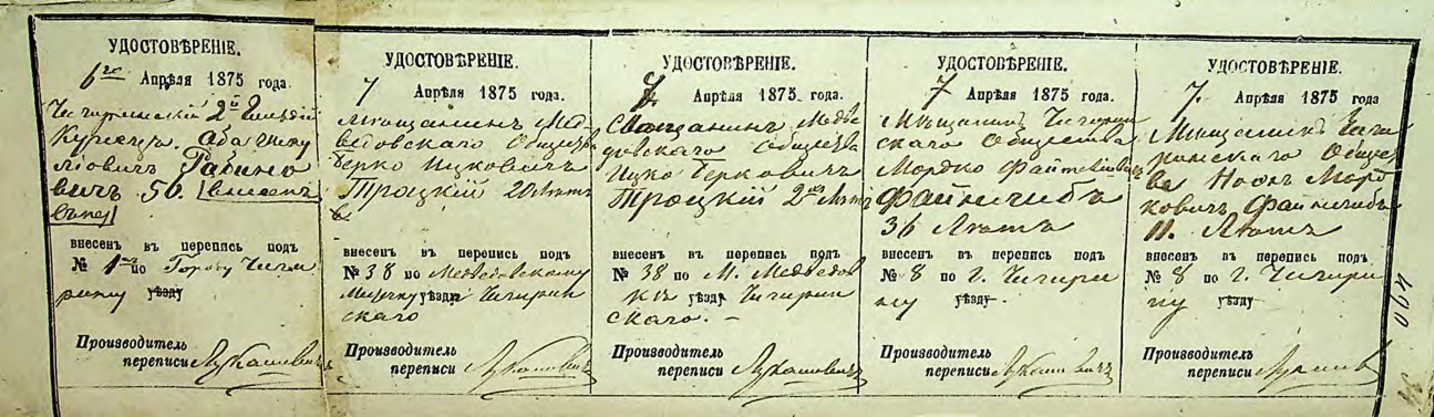 УДОСТОВѢРЕНІЕ.
6го Апрѣля 1875 года.
Чигиринскій 2й Гильдій
Купецъ. Аба Шму
ліовичъ Рабино
вичъ 50. внесенъ
внесенъ въ перепись подъ
№ 1 по Городу Чиги
рину уѣзду
Производитель
переписи Лукашевичъ
УДОСТОВѢРЕНІЕ.
7 Апрѣля 1875 года.
Мѣщанинъ Мед-
ведовскаго Общества
Берко Ицковичъ
Троцкій 20 Лѣтъ
внесенъ въ перепись подъ
№ 38 по Медведовскому
Мѣстечку уѣзду Чигирин
скаго
Производитель
переписи Лукашевичъ
УДОСТОВѢРЕНІЕ.
7. Апрѣля 1875 года.
Мѣщанинъ Медве
довскаго Общества
Ицко Берковичъ
Троцкій 2 Лѣтъ
внесенъ въ перепись подъ
№ 38 по М. Медведов
кѣ уѣзду Чигирин
скаго. -
Производитель
переписи Лукашевичъ
УДОСТОВѢРЕНІЕ.
7 Апрѣля 1875 года.
Мѣщанинъ Чигирин
скаго Общества
Мордко
Файнгибъ
36 Лѣтъ
внесенъ въ перепись подъ
№ 8 по г. Чигири
ну уѣзду
Производитель
переписи Лукашевичъ
УДОСТОВѢРЕНІЕ.
7. Апрѣля 1875 года
Мѣщанинъ Чиги
ринскаго Общес
ва Морд
ковичъ Файнгибъ
11. Лѣтъ
внесенъ въ перепись подъ
№ 8 по г. Чигири
ну уѣзду
Производитель
переписи
490